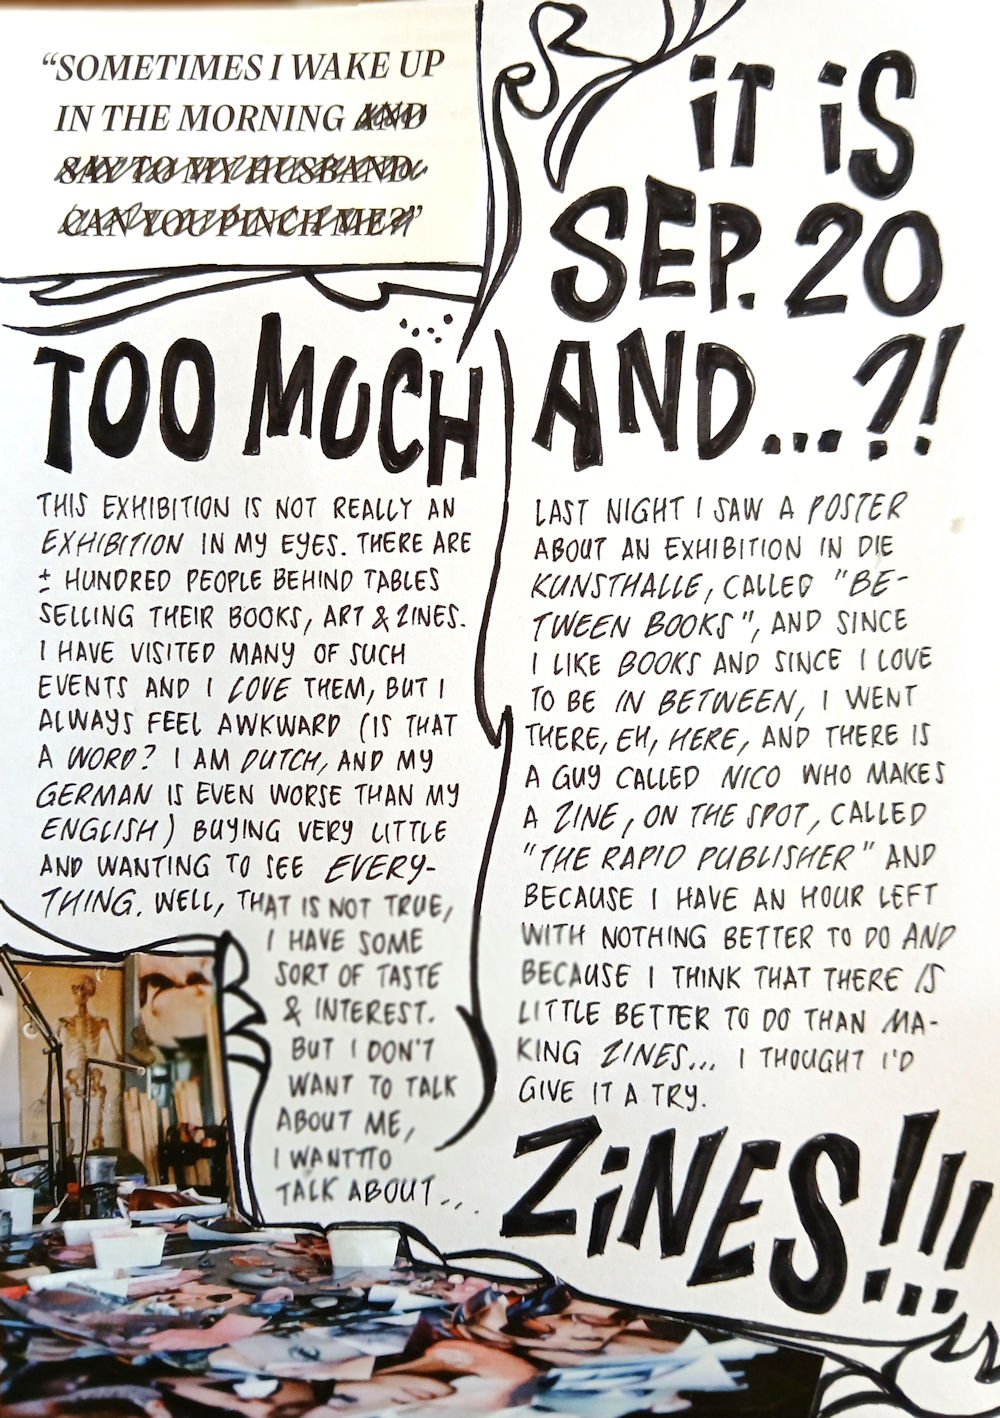 “SOMETIMES I WAKE UP
IN THE MORNING AND
SAY TO MY HUSBAND:
CAN YOU PINCH ME?”
IT IS
SEP. 20
AND...?!
TOO MUCH
THIS EXHIBITION IS NOT REALLY AN
EXHIBITION IN MY EYES. THERE ARE
± HUNDRED PEOPLE BEHIND TABLES
SELLING THEIR BOOKS, ART & ZINES.
I HAVE VISITED MANY OF SUCH
EVENTS AND I LOVE THEM, BUT I
ALWAYS FEEL AWKWARD (IS THAT
A WORD? I AM DUTCH, AND MY
GERMAN IS EVEN WORSE THAN MY
ENGLISH) BUYING VERY LITTLE
AND WANTING TO SEE EVERY-
THING. WELL, THAT IS NOT TRUE,
I HAVE SOME
SORT OF TASTE
& INTEREST.
BUT I DON'T
WANT TO TALK
ABOUT ME,
I WANT TO
TALK ABOUT...
LAST NIGHT I SAW A POSTER
ABOUT AN EXHIBITION IN DIE
KUNSTHALLE, CALLED "BE-
TWEEN BOOKS", AND SINCE
I LIKE BOOKS AND SINCE I LOVE
TO BE IN BETWEEN, I WENT
THERE, EH, HERE, AND THERE IS
A GUY CALLED NICO WHO MAKES
A ZINE, ON THE SPOT, CALLED
"THE RAPID PUBLISHER" AND
BECAUSE I HAVE AN HOUR LEFT
WITH NOTHING BETTER TO DO AND
BECAUSE I THINK THAT THERE IS
LITTLE BETTER TO DO THAN MA-
KING ZINES... I THOUGHT I'D
GIVE IT A TRY.
ZINES!!!